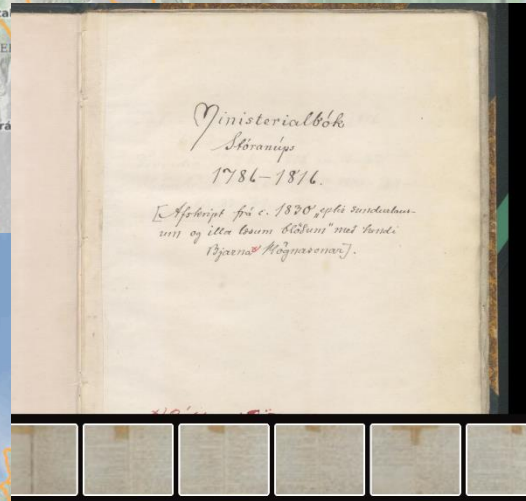 Ministerialbók
Stóranúps
1786–1816.
[Afskript frá c. 1830 „eptir sundurlaus-
um og illa lesum blöðum" með hendi
Bjarna Högnasonar].